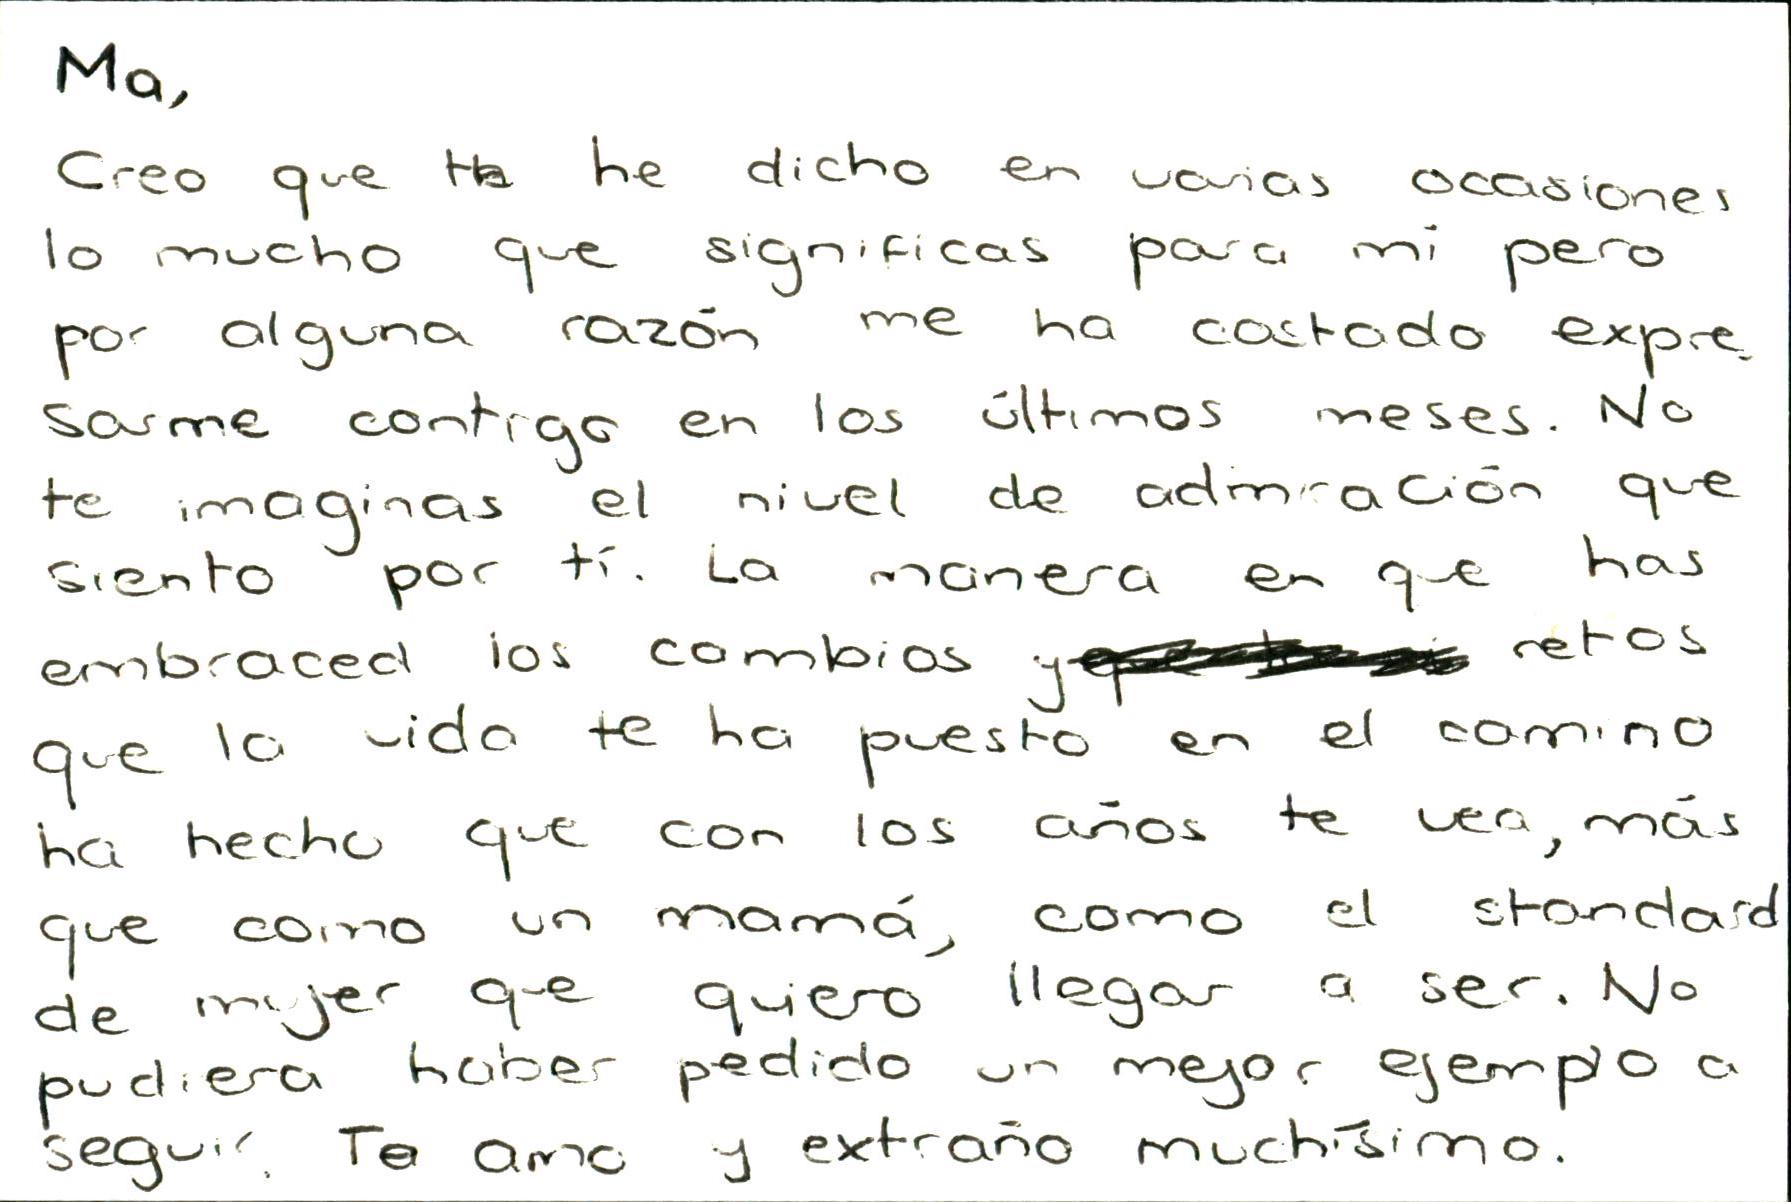 Ma,
Creo que te he dicho en varias ocasiones
lo mucho que significas para mi pero
por alguna razón me ha costado expre
sarme contigo en los últimos meses. No
te imaginas el nivel de admiración que
siento por tí. La manera en que has
embraced los cambios y retos
que la vida te ha puesto en el camino
ha hecho que con los años te vea, más
que como un mamá, como el standard
de mujer que quiero llegar a ser. No
pudiera haber pedido un mejor ejemplo a
seguir. Te amo y extraño muchísimo.